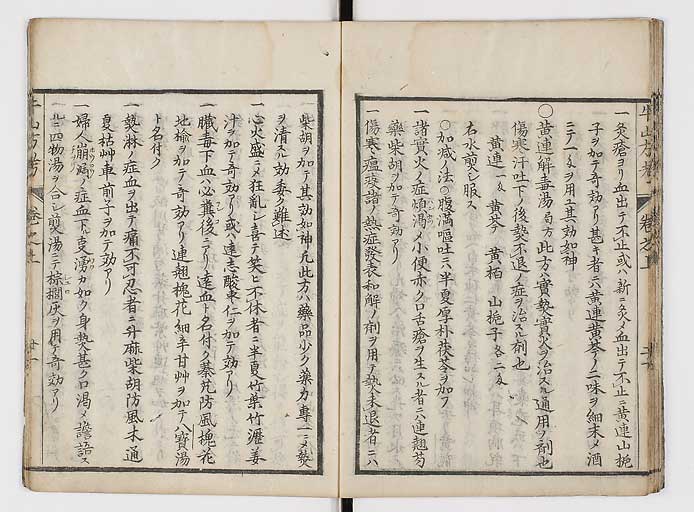 一灸瘡ヨリ血出テ不止或ハ新ニ灸メ血出テ不止ニ黄連山梔
子ヲ加テ奇効アリ甚キ者ニハ黄連黄芩ノ二味ヲ細末メ酒
ニテ一匁ヲ用ユ其効如神
〇黄連解毒湯 局方 此方ハ實熱實火ヲ治スル通用ノ剤也
傷寒汗吐下ノ後熱不退ノ症ヲ治スル剤也
黄連 一匁 黄芩 黄栢 山梔子 各二匁
右水煎シ服ス
〇加减ノ法〇腹満嘔吐ニハ半夏厚朴茯苓ヲ加フ
一諸實火ノ症煩渇メ小便赤ク口舌瘡ヲ生スル者ニハ連翹芍
藥柴胡ヲ加テ奇効アリ
一傷寒瘟疫諸ノ熱症發表和解ノ剤ヲ用テ熱未退者ニハ
一柴胡ヲ加テ其効如神凡此方ハ藥品少ク藥力專一ニメ熱
ヲ清ルノ効委ク難述
一心火盛ニメ狂亂シ喜テ笑ヒ不休者ニ半夏竹葉竹瀝姜
汁ヲ加テ奇効アリ或ハ遠志酸棗仁ヲ加テ効アリ
一臟毒下血ハ必糞後ニアリ遠血ト名付ク秦艽防風槐花
地楡ヲ加テ奇効アリ連翹槐花細辛甘艸ヲ加テ八寶湯
ト名付ク
一熱淋ノ症血ヲ出テ痛不可忍者ニ升麻柴胡防風木通
夏枯艸車前子ヲ加テ効アリ
一婦人崩漏ノ症血下ルヿ湧カ如ク身熱甚ク口渇メ譫語ス
ルニ四物湯ヲ合シ煎湯ニテ棕櫚灰ヲ用テ奇効アリ
牛山方考
卷之上